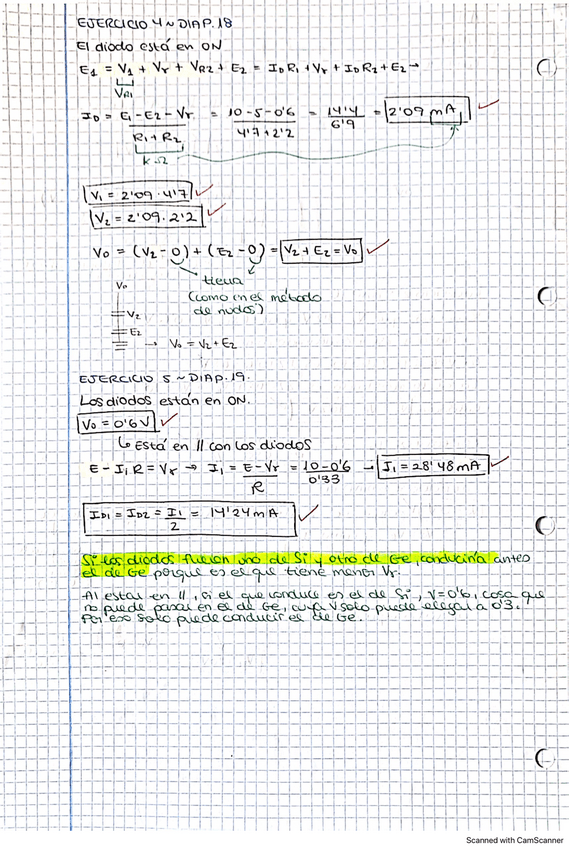 EJERCICIO 4 ~ DIAP. 18
El diodo está en ON
E1 = V1 + Vγ + VR2 + E2 = ID R1 + Vγ + ID R2 + E2 →
VR1
ID = E1 - E2 - Vγ / R1 + R2 = 10 - 5 - 0'6 / 4'7 + 2'2 = 14'4 / 6'9 = 2'09 mA
kΩ
V1 = 2'09 · 4'7
V2 = 2'09 · 2'2
Vo = (V2 - 0) + (E2 - 0) = V2 + E2 = Vo
tierra
(como en el método
de nudos)
Vo
V2
E2
→ Vo = V2 + E2
EJERCICIO 5 ~ DIAP. 19.
Los diodos están en ON.
Vo = 0'6 V
↳ Está en // con los diodos
E - I1 R = Vγ → I1 = E - Vγ / R = 10 - 0'6 / 0'33 → I1 = 28'48 mA
ID1 = ID2 = I1 / 2 = 14'24 mA
Si los diodos fuesen uno de Si y otro de Ge, conduciría antes
el de Ge porque es el que tiene menor Vγ.
Al estar en //, si el que conduce es el de Si, V = 0'6, cosa que
no puede pasar en el de Ge, cuya V solo puede llegar a 0'3.
Por eso solo puede conducir el de Ge.
Scanned with CamScanner